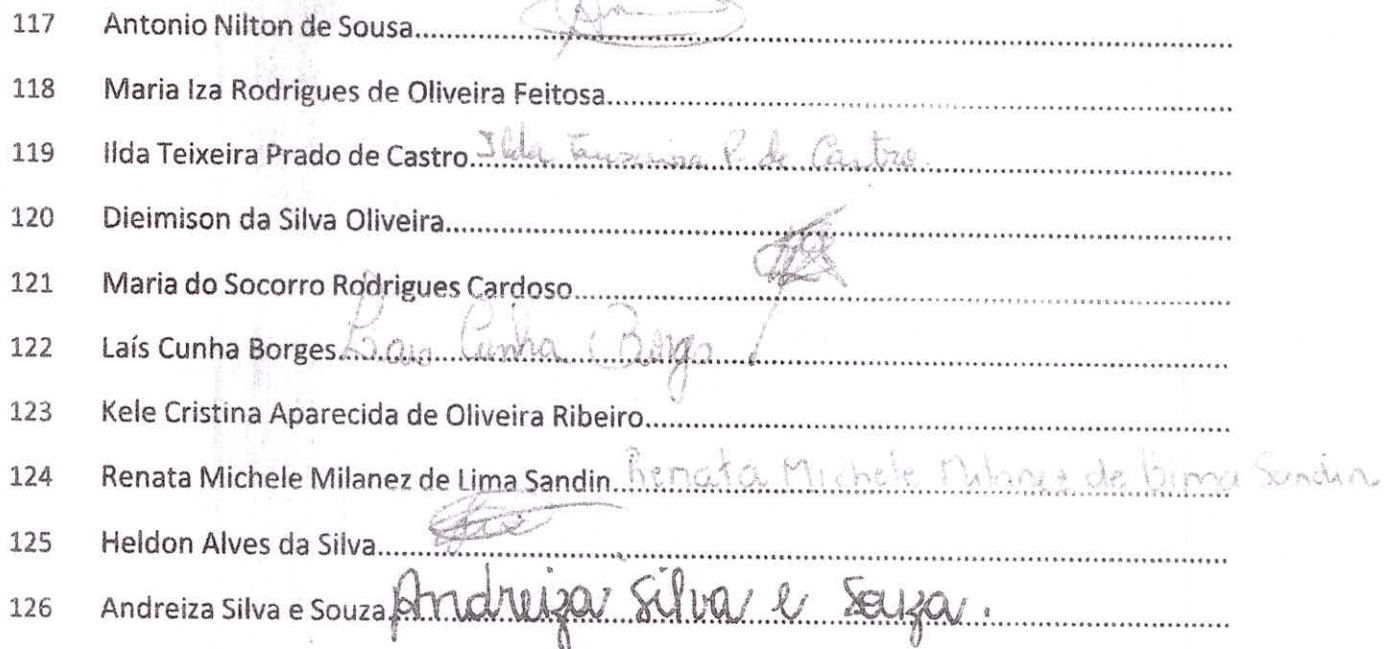 117 Antonio Nilton de Sousa..........
118 Maria Iza Rodrigues de Oliveira Feitosa..........
119 Ilda Teixeira Prado de Castro.......... Ilda P. de Castro
120 Dieimison da Silva Oliveira..........
121 Maria do Socorro Rodrigues Cardoso..........
122 Laís Cunha Borges.......... Cunha
123 Kele Cristina Aparecida de Oliveira Ribeiro..........
124 Renata Michele Milanez de Lima Sandin.......... Renata Michele Milanez de Lima Sandin
125 Heldon Alves da Silva..........
126 Andreiza Silva e Souza.......... Andreiza Silva e Souza.